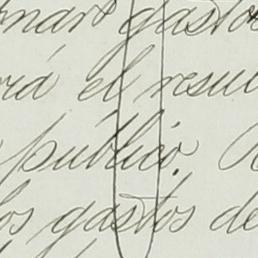 gastos
rá el resul
público.
los gastos de